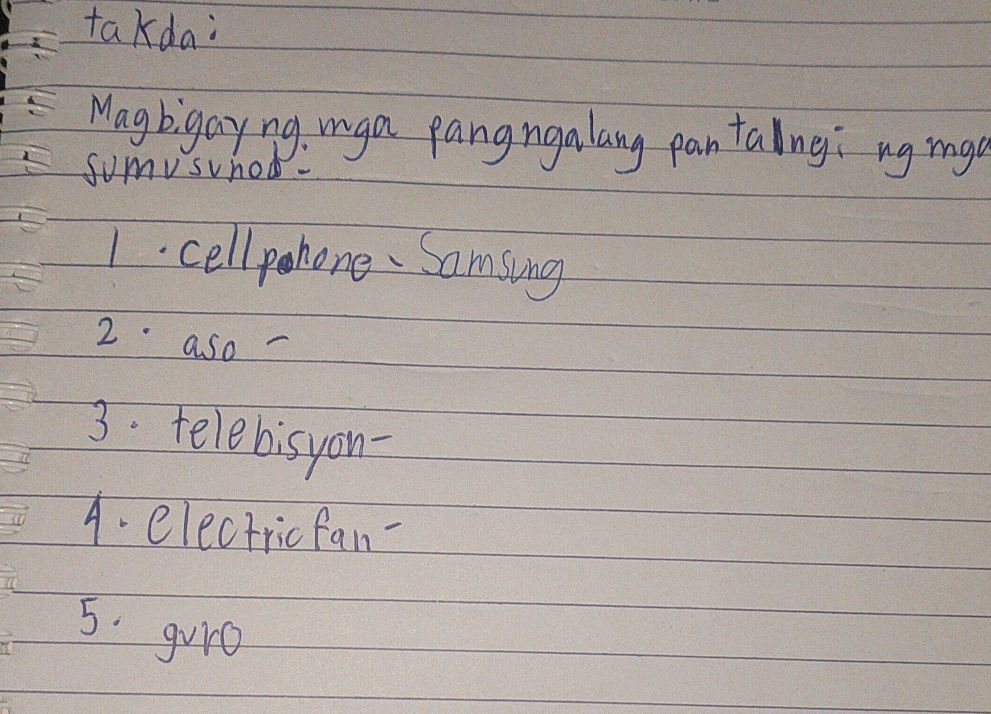 takda:
Magbigay ng mga pangngalang pantalngi ng mga
sumusunod -
1. cellpohone - Samsung
2. aso -
3. telebisyon -
4. electricfan -
5. guro